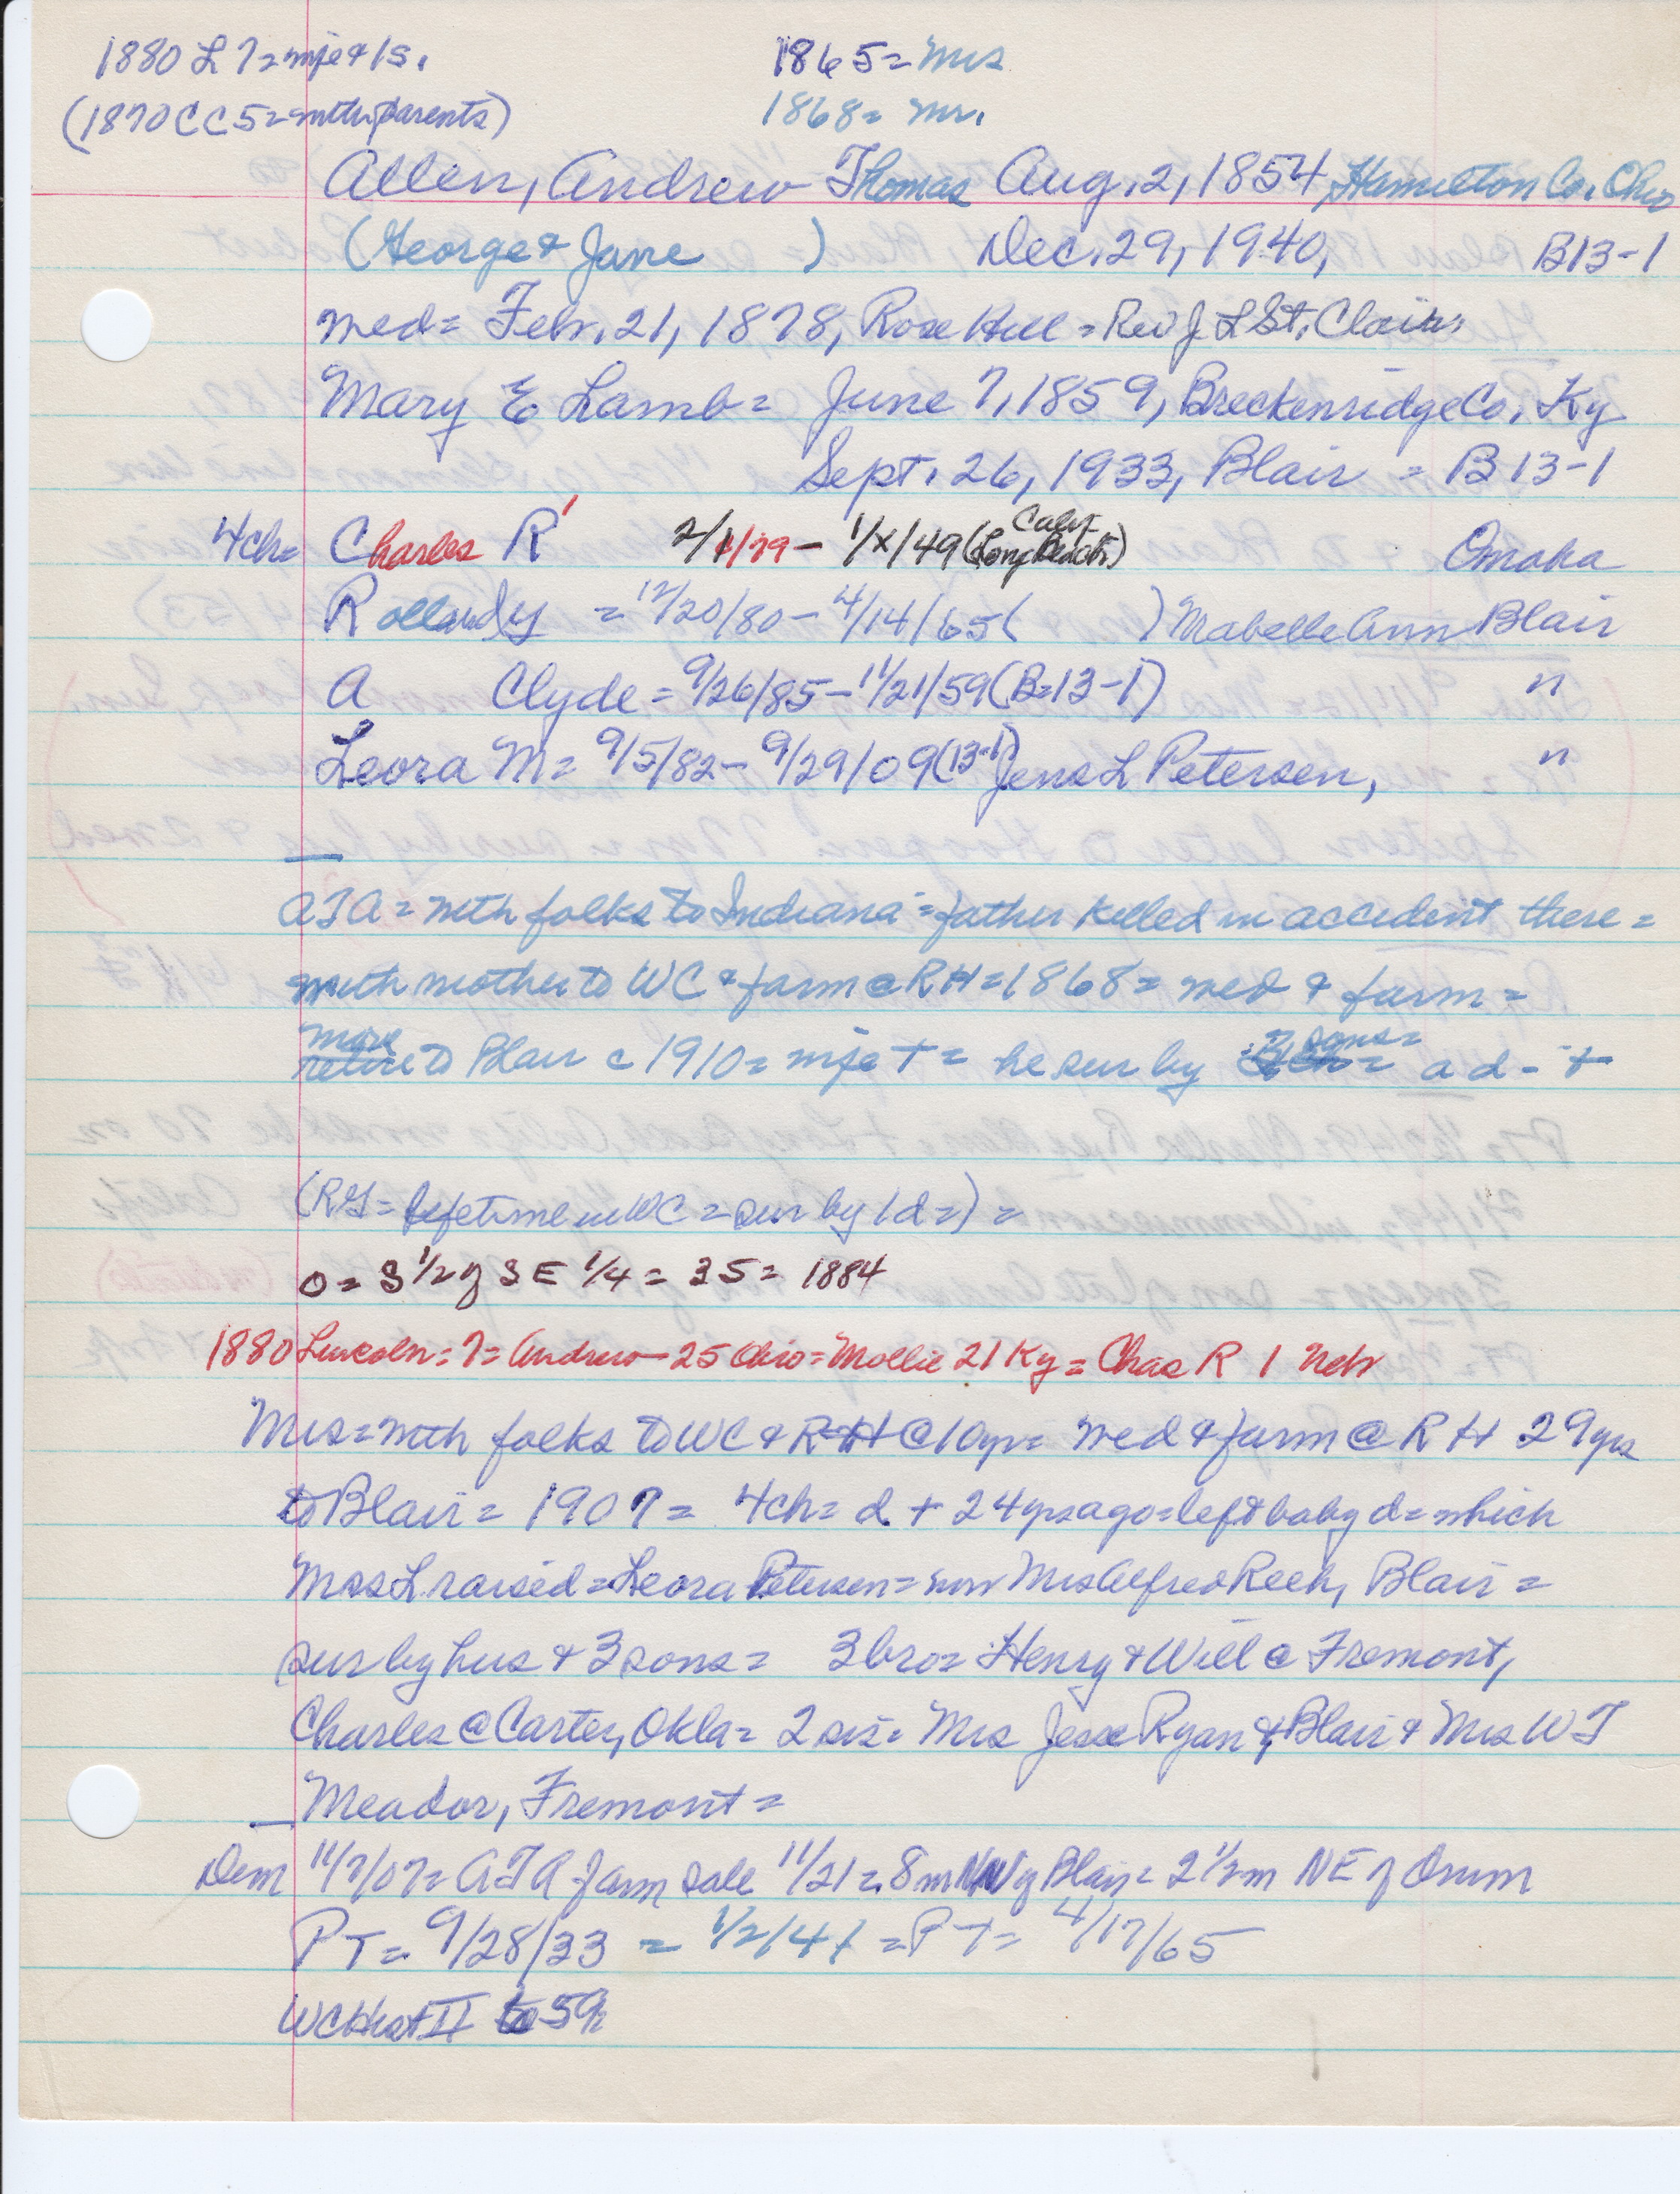 1880 L 7 = mfe + 1s. 1865 = Mrs
(1870 CC5 = with parents) 1868 = Mr.
Allen, Andrew Thomas Aug. 2, 1854 Hamilton Co. Ohio
(George & Jane ) Dec. 29, 1940, B13-1
med = Febr. 21, 1878, Rose Hill = Rev J L St. Clair
Mary E Lamb = June 7, 1859, Breckenridge Co. Ky
Sept. 26, 1933, Blair = B 13-1
4ch = Charles R 2/1/79 - 1/x/49 (Long Beach Calif) Omaha
Rolland y = 12/20/80 - 4/14/65 ( ) Mabelle Ann Blair
A Clyde = 9/26/85 - 11/21/59 (B=13-1) "
Leora M = 9/5/82 - 9/29/09 (13-1) Jens L Petersen, "
ATA = with folks to Indiana = father killed in accident there =
with mother to WC & farm @ RH = 1868 = med & farm =
move
retire to Blair c 1910 = mfe + = he sur by sons = a d - +
(RY = lifetime in WC = sur by 1 d =) =
O = S 1/2 of SE 1/4 = 35 = 1884
1880 Lincoln = 7 = Andrew - 25 Ohio = Mollie 21 Ky = Chas R 1 Neb
Mrs = with folks to WC & RH @ 10yr = med & farm @ RH 29yrs
to Blair = 1907 = 4ch = d + 24 yrs ago = left baby d = which
Mrs L raised = Leora Petersen = now Mrs Alfred Reeh, Blair =
sur by hus & 3 sons = 3 bro = Henry & Will @ Fremont,
Charles @ Carter, Okla = 2 sis = Mrs Jesse Ryan of Blair & Mrs WT
Meador, Fremont =
Dem 11/7/07 = ATA farm sale 11/21 = 8m NW of Blair = 2 1/2 m NE of Orum
PT = 9/28/33 = 1/2/41 = PT = 4/17/65
WC Hist II to 59